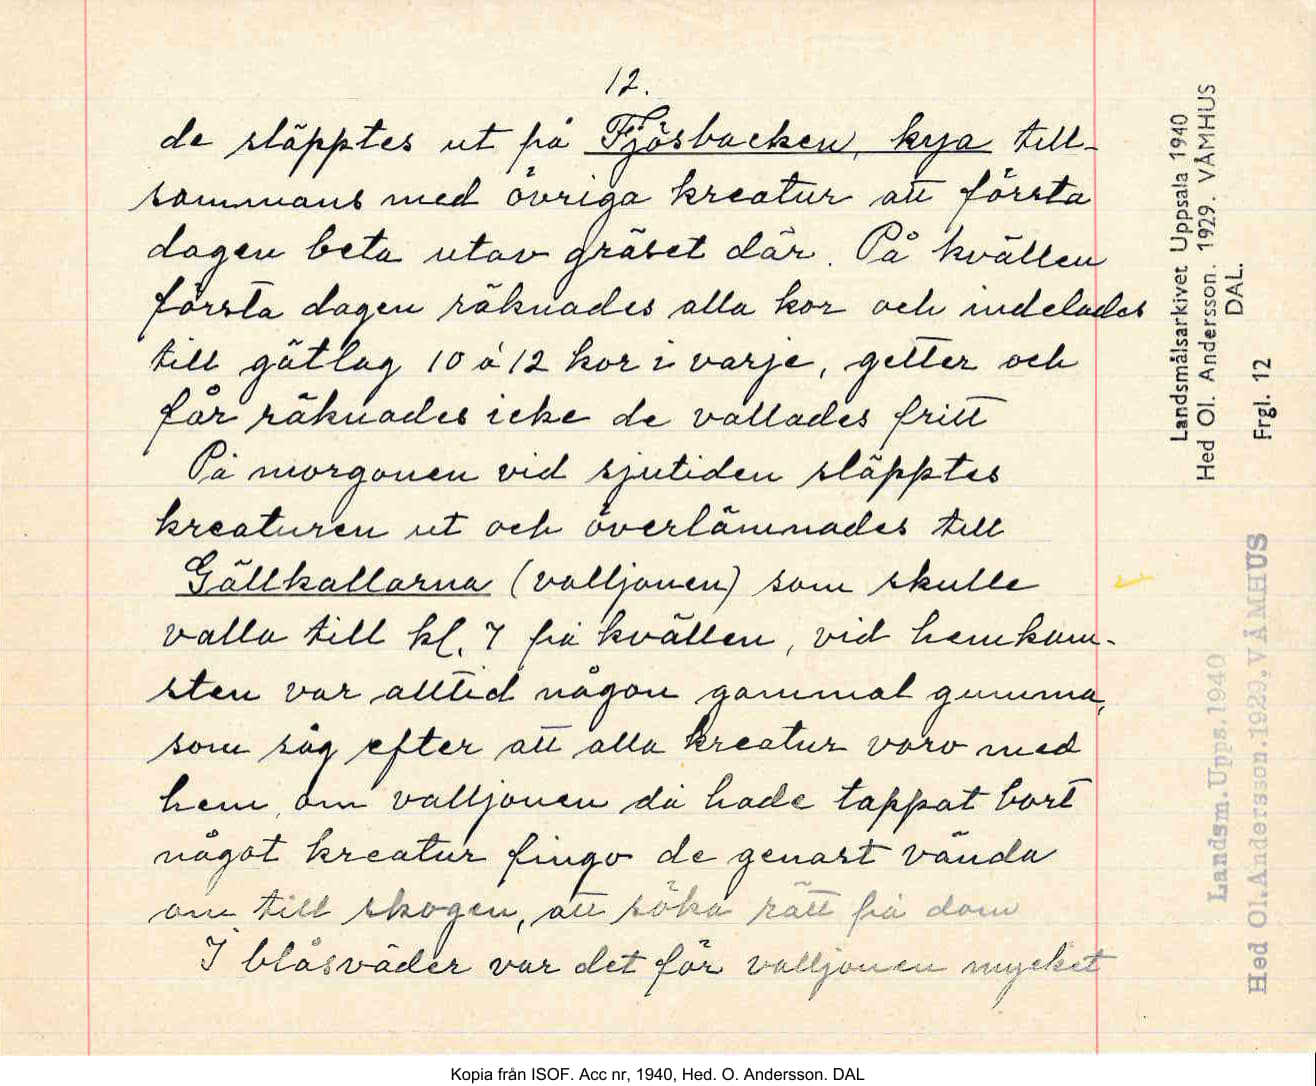 12.
de släpptes ut på Fjösbacken, kya till-
sammans med övriga kreatur att första
dagen beta utav gräset där. På kvällen
första dagen räknades alla kor och indelades
till gätlag 10 á 12 kor i varje, getter och
får räknades icke de vallades fritt
På morgonen vid sjutiden släpptes
kreaturen ut och överlämnades till
Gällkallarna (valljonen) som skulle
valla till kl. 7 på kvällen, vid hemkom-
sten var alltid någon gammal gumma,
som såg efter att alla kreatur voro med
hem, om valljonen då hade tappat bort
något kreatur fingo de genast vända
om till skogen, att söka rätt på dom
I blåsväder var det för valljonen mycket
Landsmålsarkivet Uppsala 1940
Hed Ol. Andersson. 1929. VÅMHUS
DAL.
Frgl. 12
Landsm. Upps. 1940
Hed Ol. Andersson. 1929, VÅMHUS
Kopia från ISOF. Acc nr, 1940, Hed. O. Andersson. DAL